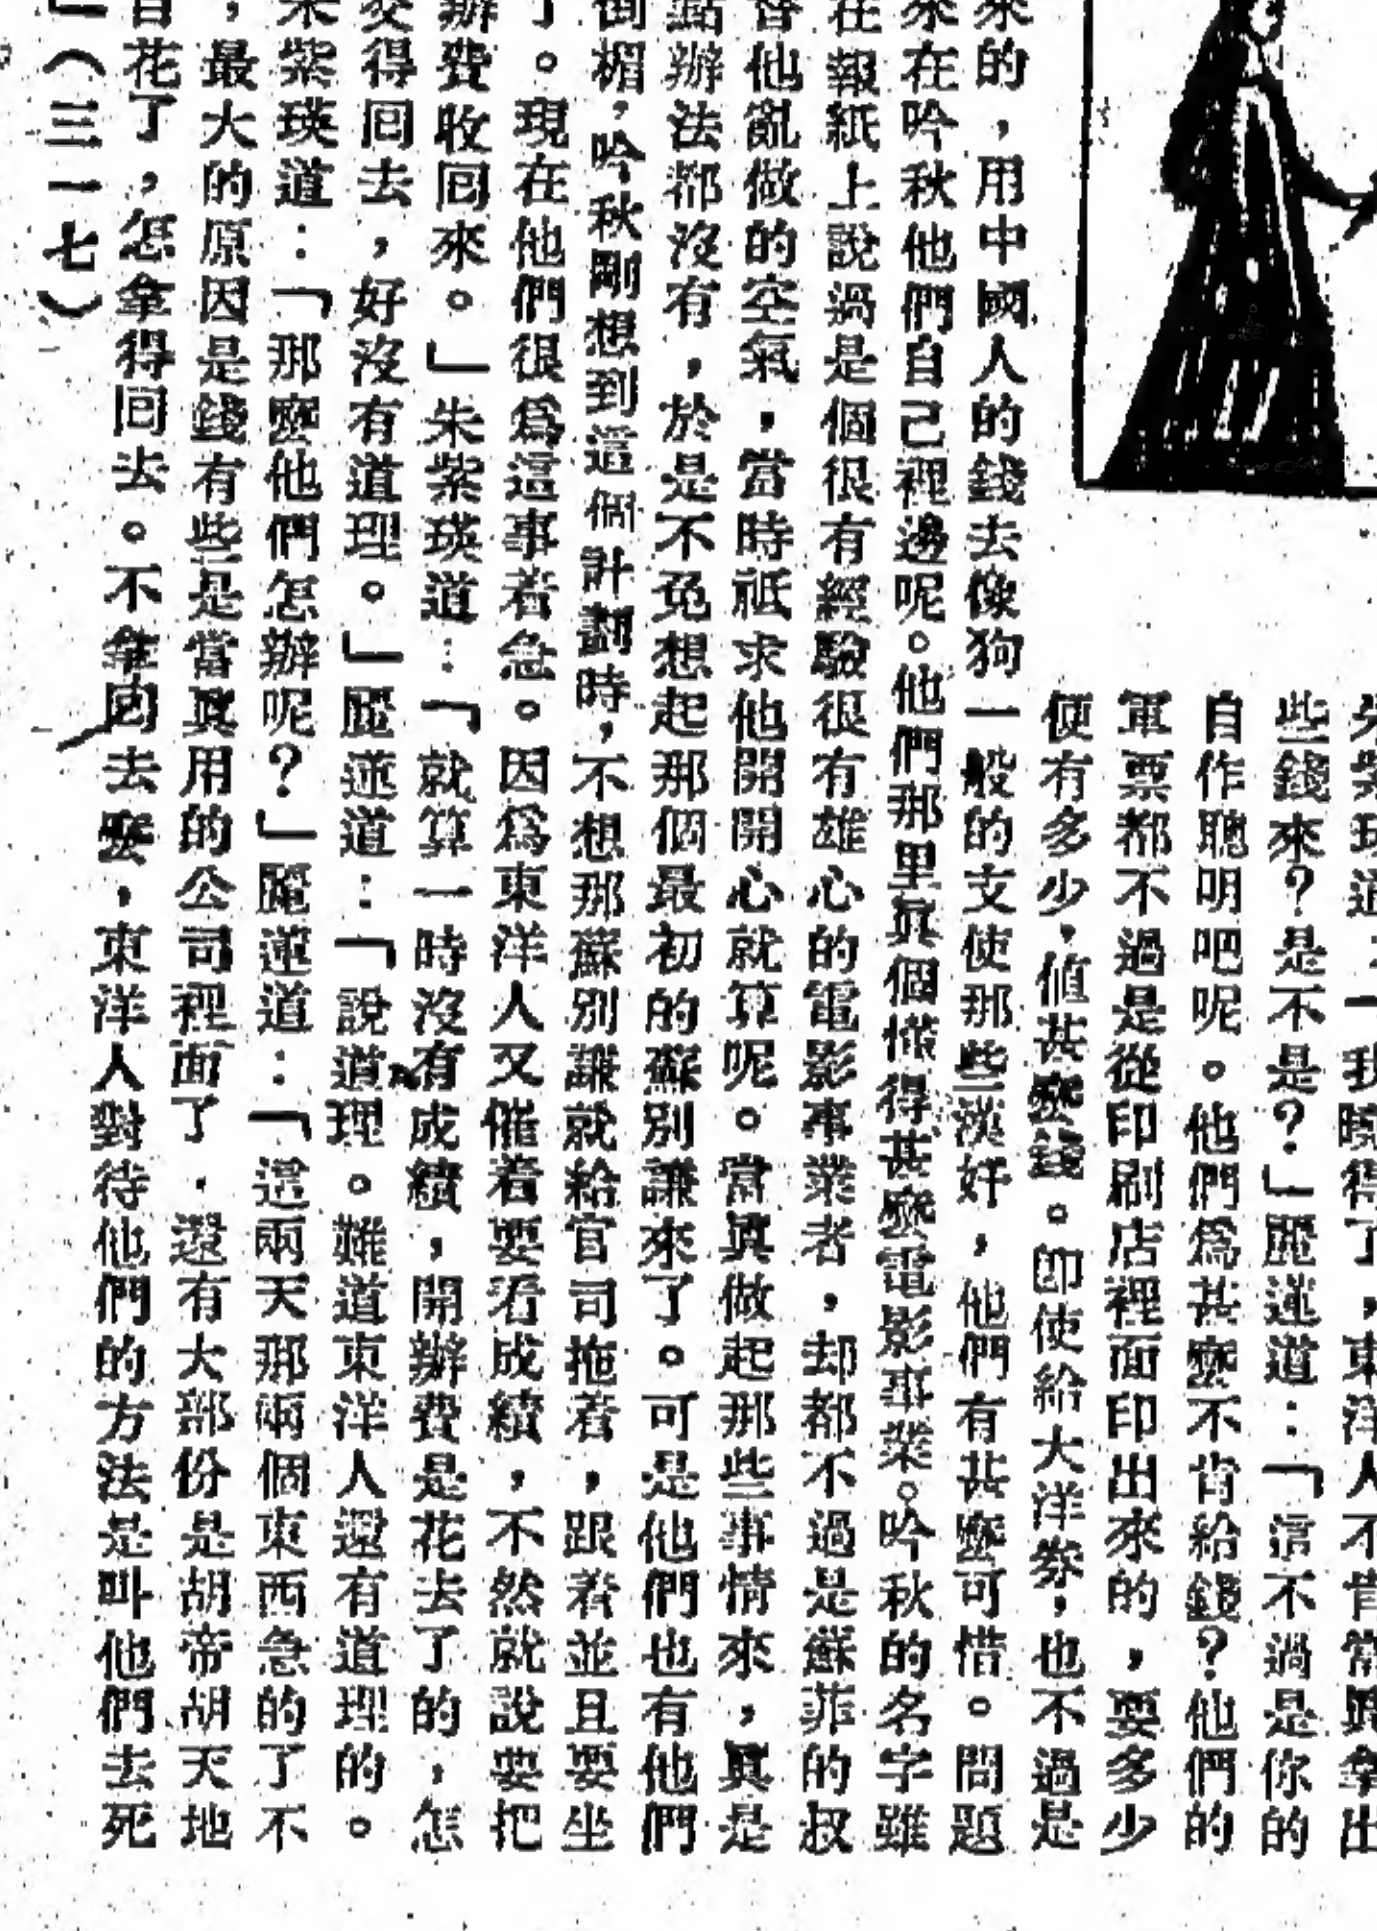 道：「我曉得了，東洋人不肯當眞拿出
些錢來？是不是？」麗蓮道：「這不過是你的
自作聰明吧呢。他們爲甚麼不肯給錢？他們的
軍票都不過是從印刷店裡面印出來的，要多少
便有多少，値甚麼錢。卽使給大洋券，也不過是
來的，用中國人的錢去像狗一般的支使那些漢奸，他們有甚麼可惜。問題
來在吟秋他們自己裡邊呢。他們那里眞個懂得甚麼電影事業。吟秋的名字雖
在報紙上說過是個很有經驗很有雄心的電影事業者，却都不過是蘇菲的叔
替他亂做的空氣，當時祗求他開開心就算呢。當眞做起那些事情來，眞是
點辦法都沒有，於是不免想起那個最初的蘇別謙來了。可是他們也有他們
倒楣，吟秋剛想到這個計劃時，不想那蘇別謙就給官司拖着，跟着並且要坐
了。現在他們很爲這事着急。因爲東洋人又催着要看成績，不然就說要把
辦費收囘來。」朱紫瑛道：「就算一時沒有成績，開辦費是花去了的，怎
交得囘去，好沒有道理。」麗蓮道：「說道理。難道東洋人還有道理的。
朱紫瑛道：「那麼他們怎辦呢？」麗蓮道：「這兩天那兩個東西急的了不
，最大的原因是錢有些是當眞用的公司裡面了．還有大部份是胡帝胡天地
自花了，怎拿得囘去。不拿囘去麼，東洋人對待他們的方法是叫他們去死
」（三一七）